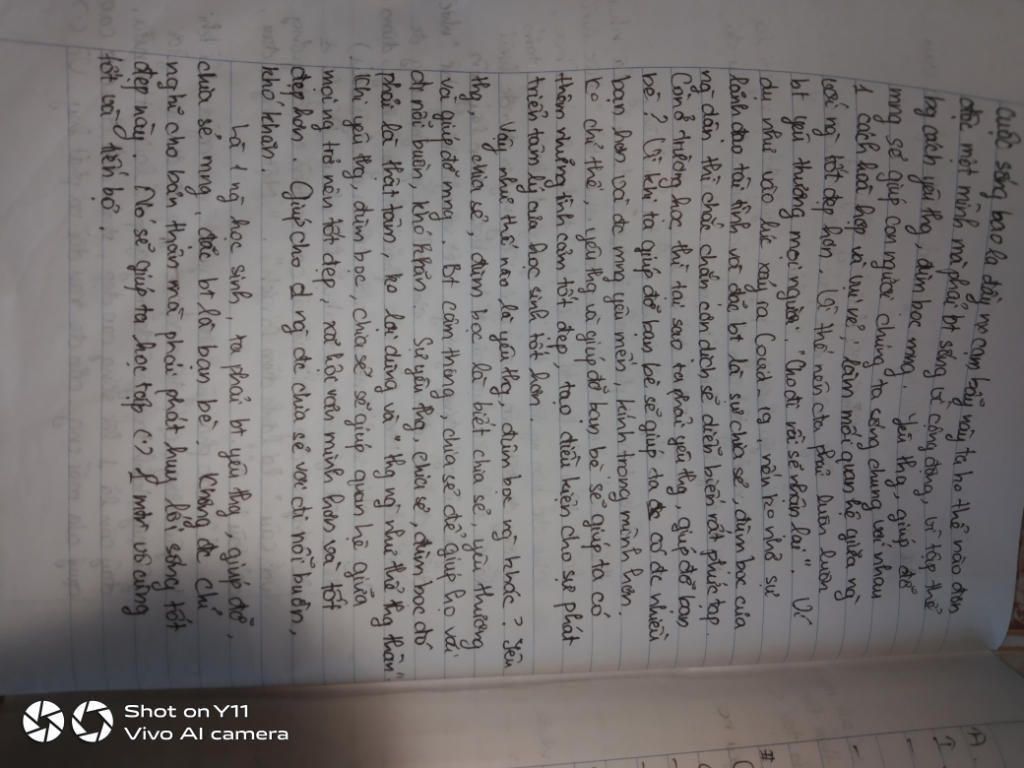 Cuộc sống bao la đầy rẫy cạm bẫy này ta ko thể nào đơn
độc một mình mà phải bt sống vì cộng đồng, vì tập thể
bg cách yêu thg, đùm bọc mng. Yêu thg, giúp đỡ
mng sẽ giúp con người chúng ta sống chung với nhau
1 cách hoà hợp và vui vẻ, làm mối quan hệ giữa ng
với ng tốt đẹp hơn. Vì thế nên cta phải luôn luôn
bt yêu thương mọi người. "Cho đi rồi sẽ nhận lại". Ví
dụ như vào lúc xảy ra Covid-19, nếu ko nhờ sự
lãnh đạo tài tình và đặc bt là sự chia sẻ, đùm bọc của
ng dân thì chắc chắn còn dịch sẽ diễn biến rất phức tạp.
Còn ở trường học thì tại sao ta phải yêu thg, giúp đỡ bạn
bè? Vì khi ta giúp đỡ bạn bè sẽ giúp ta có đc nhiều
bạn hơn và đc mng yêu mến, kính trọng mình hơn.
Ko chỉ thế, yêu thg và giúp đỡ bạn bè sẽ giúp ta có
thêm những tình cảm tốt đẹp, tạo điều kiện cho sự phát
triển tâm lý của học sinh tốt hơn.
Vậy như thế nào là yêu thg, đùm bọc ng khác? Yêu
thg, chia sẻ, đùm bọc là biết chia sẻ, yêu thương
và giúp đỡ mng. Bt cảm thông, chia sẻ để giúp họ vơi
đi nỗi buồn, khó khăn. Sự yêu thg, chia sẻ, đùm bọc đó
phải là thật tâm, ko lợi dụng và "thg ng như thể thg thân".
Khi yêu thg, đùm bọc, chia sẻ sẽ giúp quan hệ giữa
mọi ng trở nên tốt đẹp, xã hội văn minh hơn và tốt
đẹp hơn. Giúp cho 1 ng đc chia sẻ vơi đi nỗi buồn,
khó khăn.
Là 1 ng học sinh, ta phải bt yêu thg, giúp đỡ,
chia sẻ mng, đặc bt là bạn bè. Không đc chỉ
nghĩ cho bản thân mà phải phát huy lối sống tốt
đẹp này. Nó sẽ giúp ta học tập ở 1 mtr vô cùng
tốt và tiến bộ.
A
I
-
#
-
Shot on Y11
Vivo AI camera